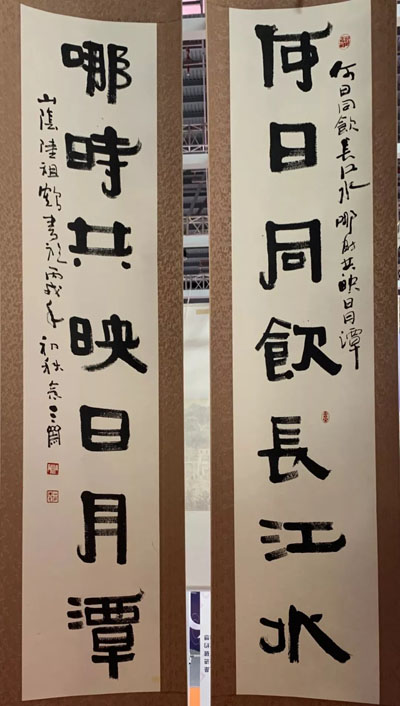 何日同飲長江水
何日同飲長江水 哪時共映日月潭
哪時共映日月潭
山陰陸祖鶴書於丙戌年初秋